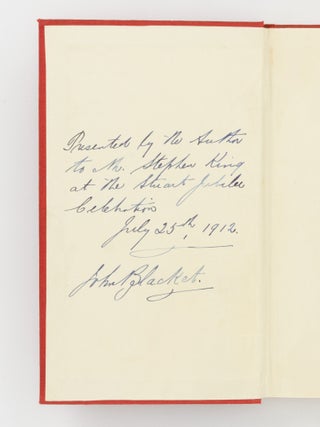 Presented by the Author
to Mr. Stephen King
at the Stuart Jubilee
Celebration
July 25th, 1912.
John Blacket.